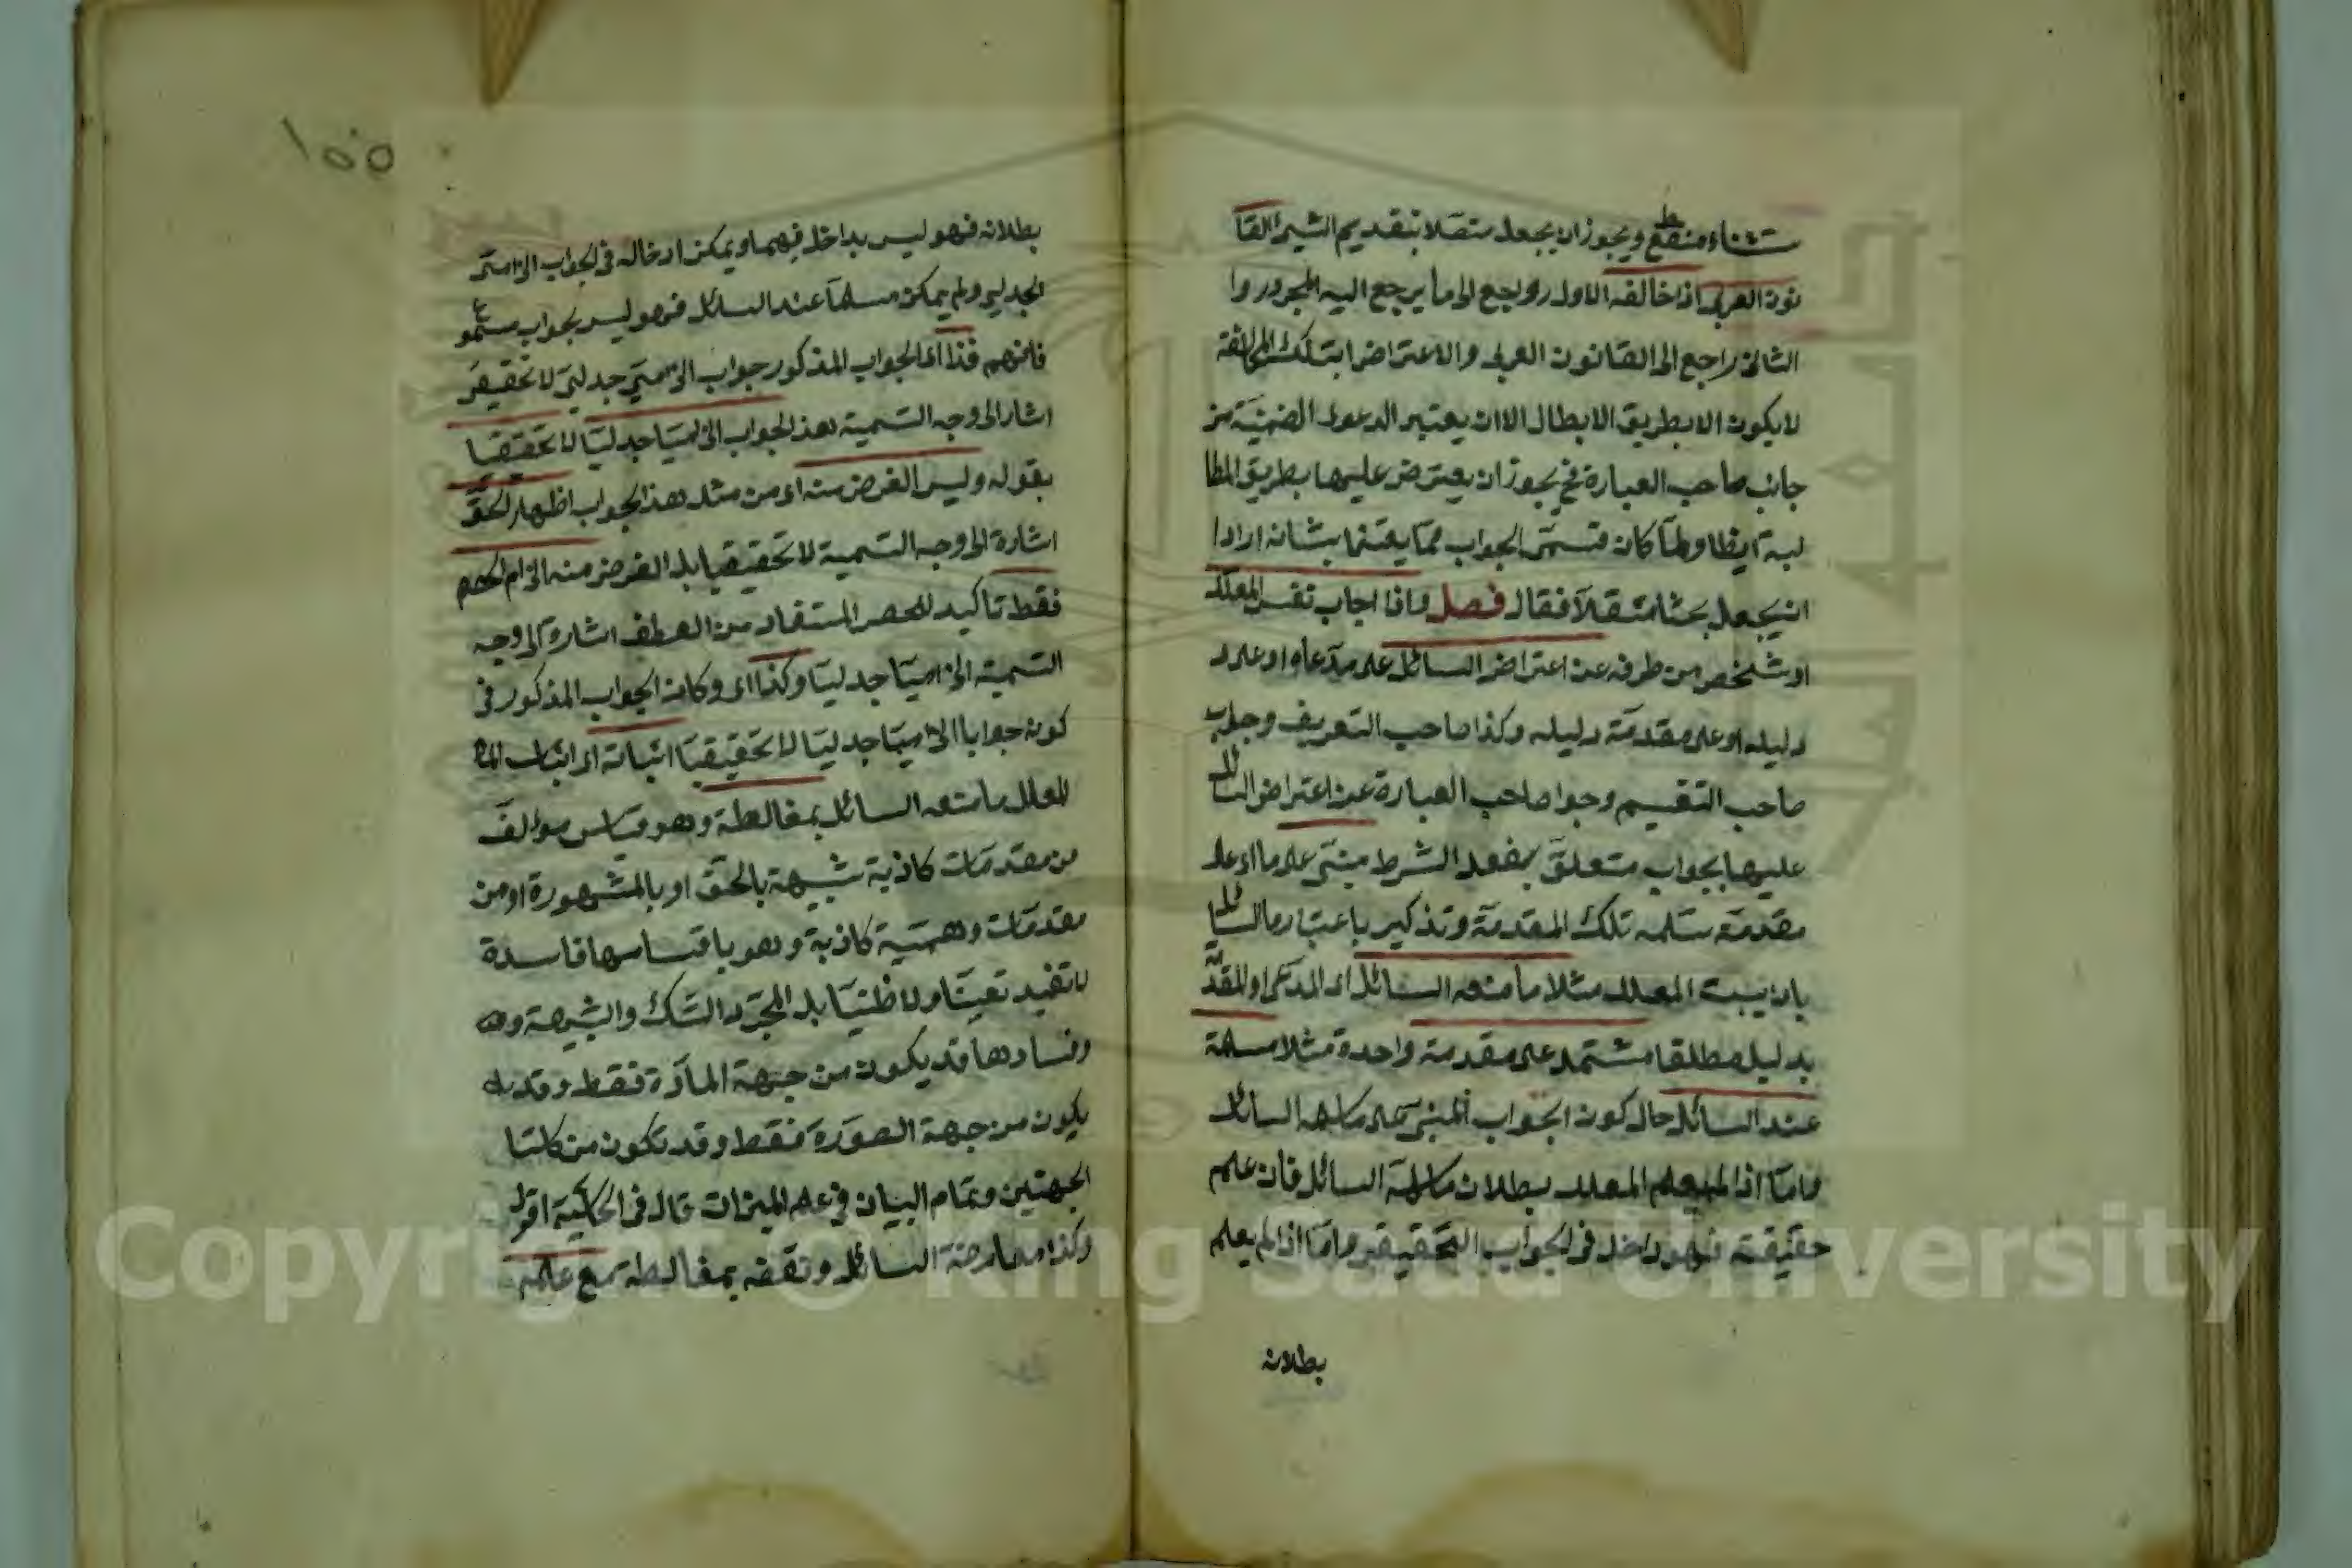 ستثناء منقطع ويجوز ان يجعل متصلا بتقديم الشيئ القا
نون العربي اذا خالفه الاول روجع الى ما يرجع اليه المجرور وا
الثاني راجع الى القانون العربي والاعتراض ابتلك المخالفة
لا يكون الا بطريق الابطال الا ان يعتبر الدعوى الضمنية من
جانب صاحب العبارة فح يجوز ان يعترض عليها بطريق المطا
لبة ايضا ولما كان قسمى الجواب مما يعتنا بشانه ارادا
ان يجعل بحثا مستقلا فقال فصل واذا اجاب نفس المعلل
او شخص من طرفه عن اعتراض السائل على مدعاه او على د
دليله او على مقدمة دليله وكذا صاحب التعريف وجواب
صاحب التقسيم وجوا صاحب العبارة عن اعتراض السائل
عليها بجواب متعلق بفعل الشرط مبنى على ما اى على
مقدمة سلمه تلك المقدمة وتذكير باعتبار ما السائل
بان يثبت المعلل مثلا ما منعه السائل اى المدعى او المقدمة
بدليل مطلقا مشتمل على مقدمة واحدة مثلا مسلمة
عند السائل حال كون الجواب المبنى على ما سلمه السائل
واما اذا لم يعلم المعلل ببطلان ما سلمه السائل فان علم
حقيقته فهو داخل فى الجواب التحقيقى واما اذا لم يعلم
بطلانه
١٥٥
بطلانه فهو ليس بداخل فيهما ويمكن ادخاله فى الجواب الزامى
الجدلى ولم يمكن مسلما عند السائل فهو ليس بجواب مسموع
فافهم فذا اى الجواب المذكور جواب الزامى جدلى لا تحقيقى
اشار الى وجه التسمية هذ الجواب الزاميا جدليا لا تحقيقيا
بقوله وليس الغرض منه اى من مثل هذ الجواب اظهار الحق
اشارة الى وجه التسمية لا تحقيقيا بل الغرض منه الزام الخصم
فقط تاكيد للحصر المستفاد من العطف اشارة الى وجه
التسمية الزاميا جدليا وكذا اى وكان الجواب المذكور فى
كونه جوابا الزاميا جدليا لا تحقيقيا اثباته اى اثبات
المعلل ما منعه السائل بمغالطة وهو قياس مؤالف
من مقدمات كاذبة شبيهة بالحق او بالمشهورة او من
مقدمات وهمية كاذبة وهو باقسامها فاسدة
لا تفيد تعينا ولا ظنيا بل المجرد الشك والشبهة وهه
وفسادها قد يكون من جهة المادة فقط وقد
يكون من جهة الصورة فقط وقد تكون من كلتا
الجهتين وتمام البيان فى علم الميزان قال فى الحاشية اقول
وكذا معارضة السائل ونقضه بمغالطة مع علمه
Copyright © King Saud University